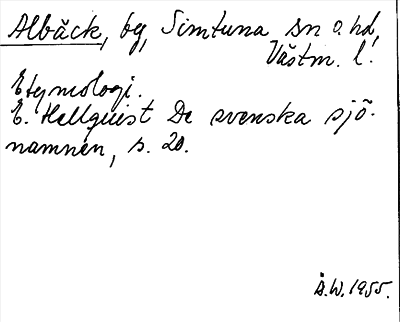 Albäck, by, Simtuna sn o. hd,
Västm. l.
Etymologi.
E. Hellquist De svenska sjö-
namnen, s. 20.
Å.W. 1955.